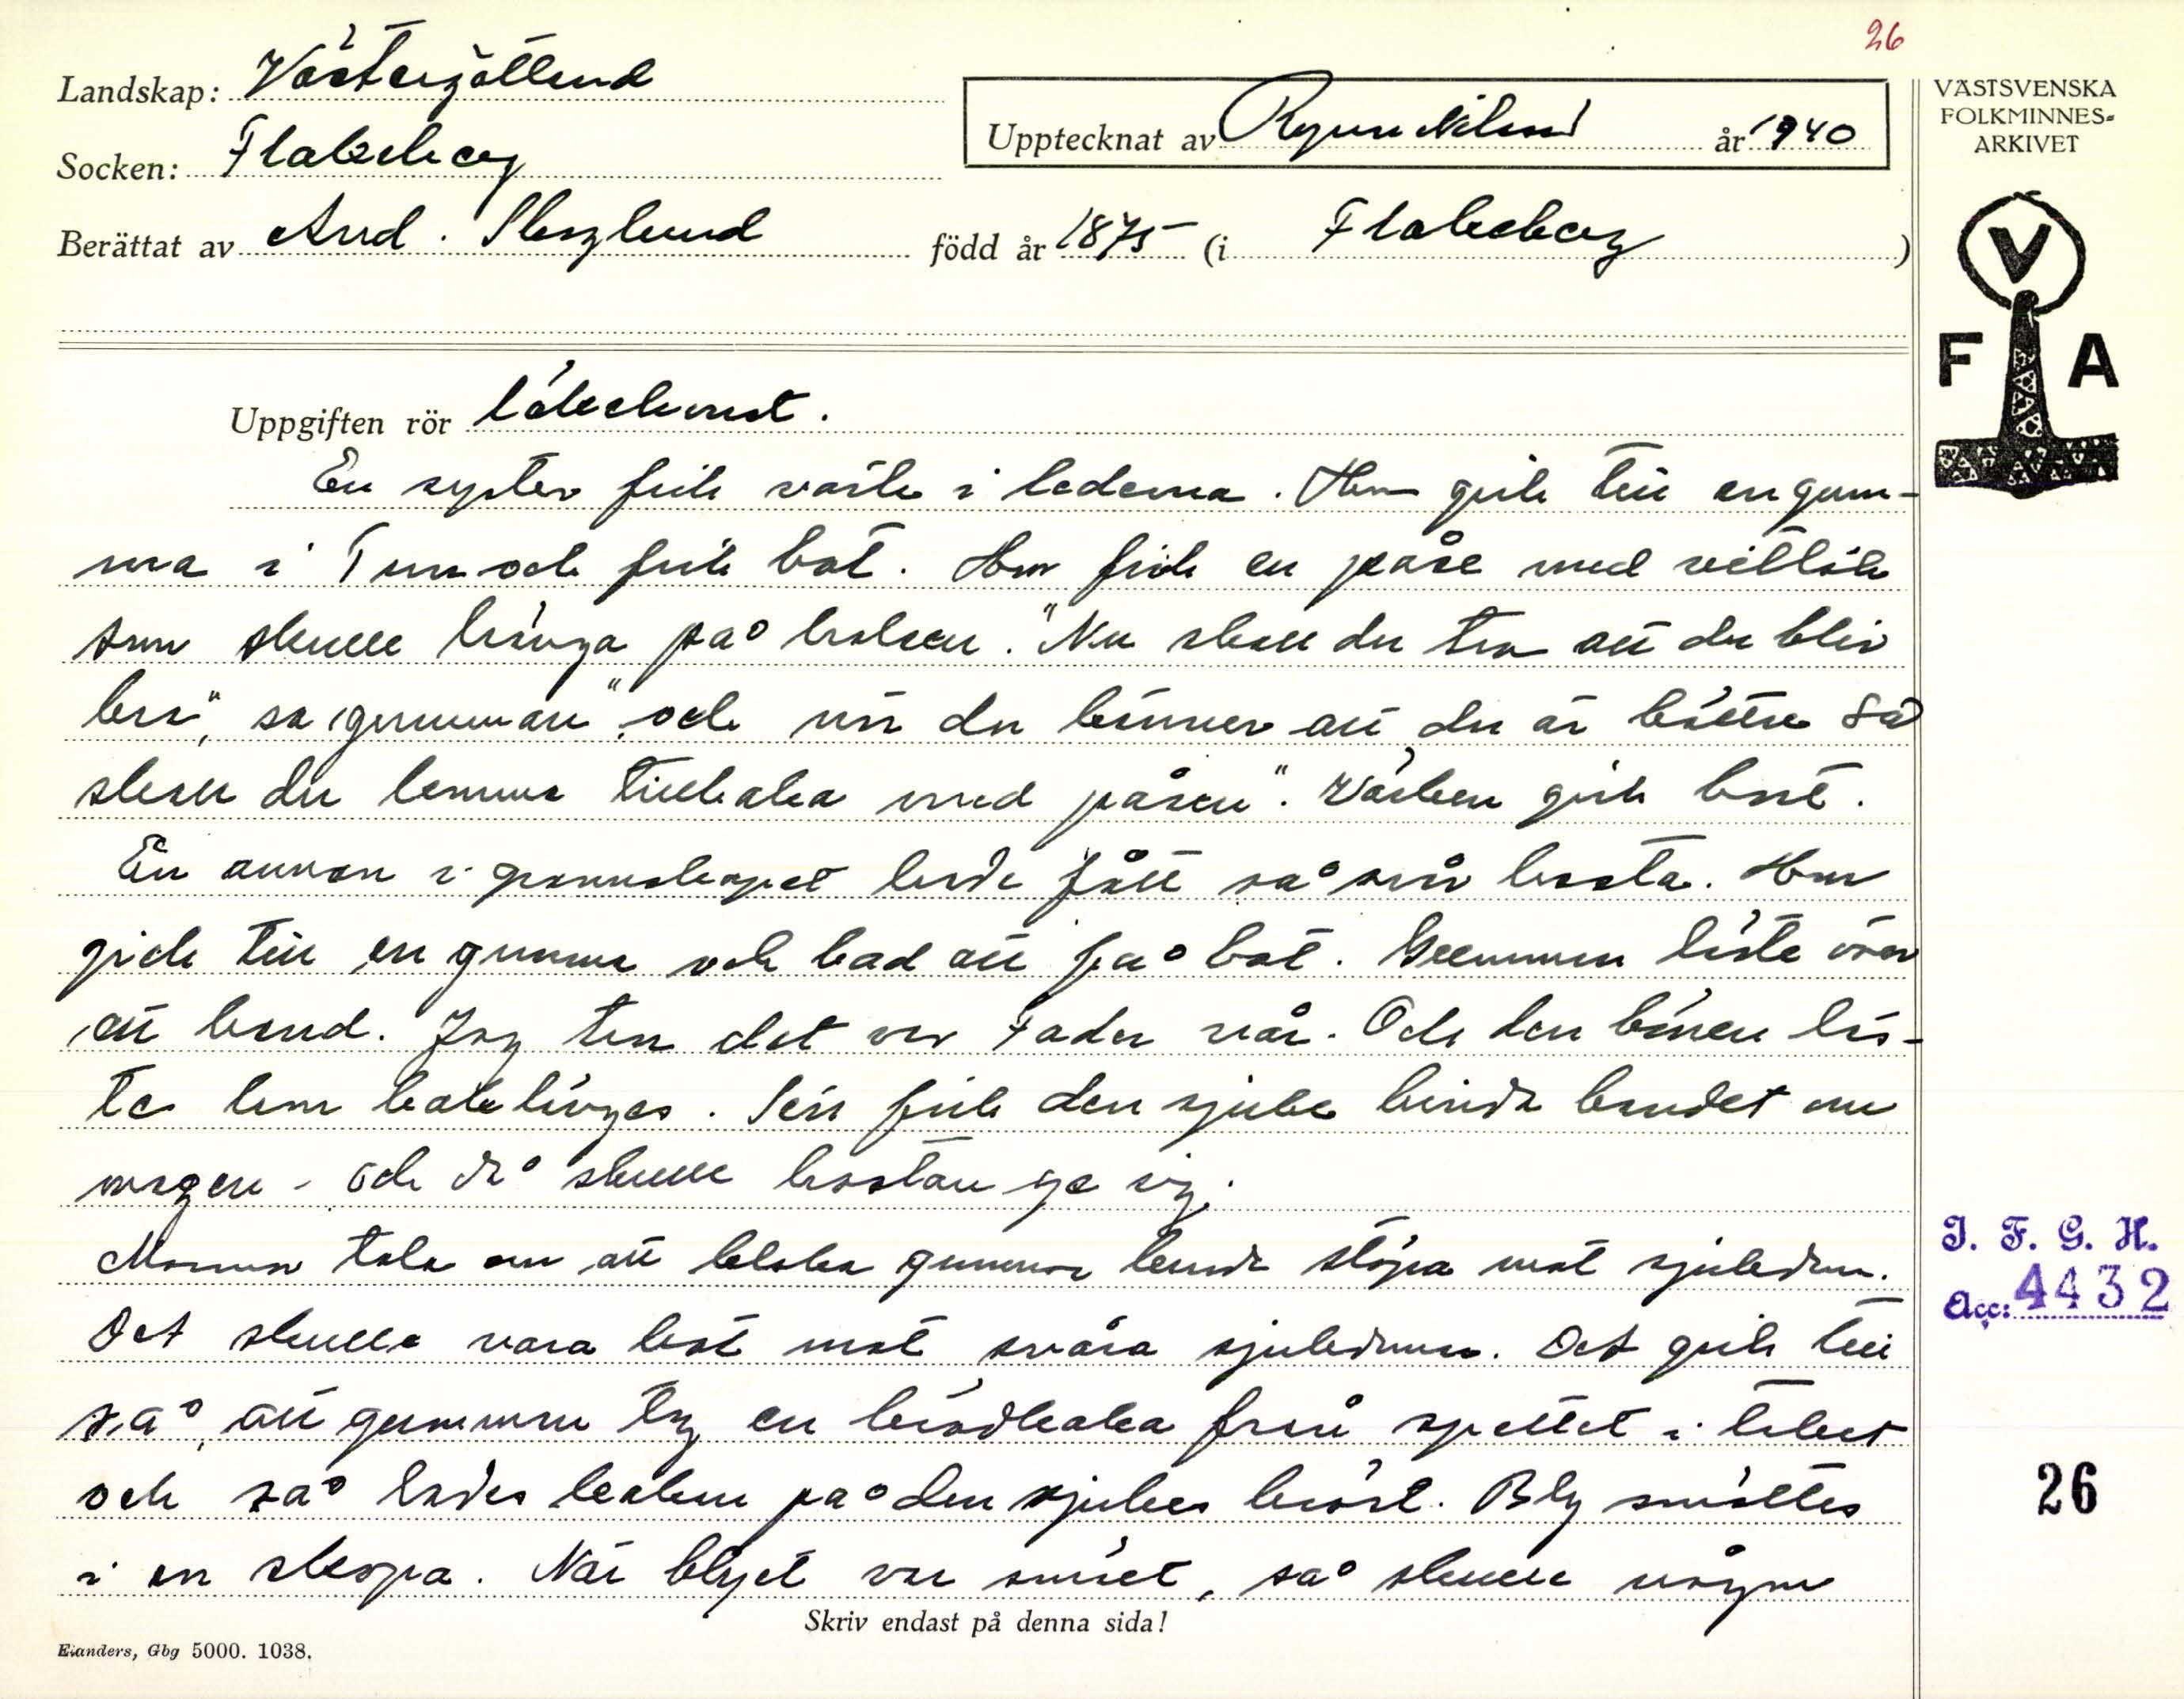 26
Landskap: Västergötland
Upptecknat av Ragnar Nilsson år 1940
VÄSTSVENSKA
FOLKMINNES=
ARKIVET
Socken: Flakeberg
Berättat av And. Skoglund född år 1875 (i Flakeberg)
V
F A
Uppgiften rör läkekonst.
En syster fick värk i lederna. Hon gick till en gum-
ma i Tun och fick bot. Hon fick en påse med vitlök
som skulle hänga på halsen. "Nu skall du tro att du blir
bra", sa gumman "och när du känner att du är bättre så
skall du komma tillbaka med påsen". Värken gick bort.
En annan i grannskapet hade fått så svår hosta. Hon
gick till en gumma och bad att få bot. Gumman läste över
ett band. Jag tror det var Fader vår. Och den bönen läs-
tes hem baklänges. Sen fick den sjuke binda bandet om
magen - och då skulle hostan ge sig.
Mormor tala om att kloka gummor kunde stöpa mot sjukdom.
Det skulle vara bot mot svåra sjukdomar. Det gick till
så, att gumman tog en brödkaka från spettet i taket
och så lades kakan på den sjukes bröst. Bly smältes
i en skopa. När blyet var smält, så skulle någon
I. F. G. H.
Acc: 4432
26
Skriv endast på denna sida!
Elanders, Gbg 5000. 1038.